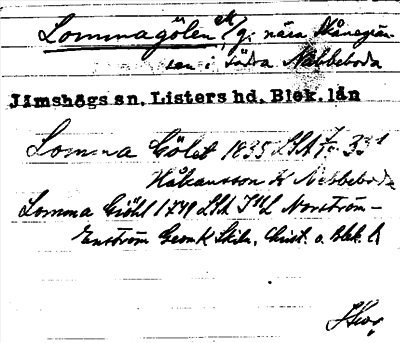 Lommagölen, g. nära Skånegrän-
sen i södra Nabbeboda
Jämshögs sn, Listers hd, Blek. län
Lomma Gölet 1835 LSA
Håkansson K Nabbeboda
Lomma Giöhl 1749 LSA Norström-
Enström GeonK Skån., Christ. o. Blek. l.